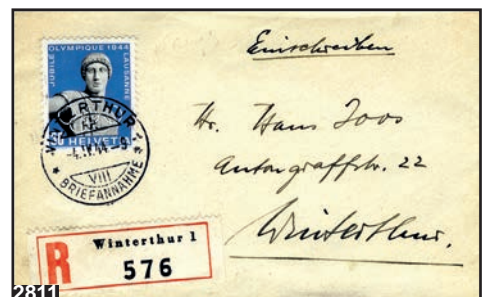 JUBILÉ OLYMPIQUE 1944 LAUSANNE
HELVETIA
WINTERTHUR
-4.IV.44.-9
VIII
BRIEFANNAHME
Einschreiben
Hr. Hans Joos
Antongraffstr. 22
Winterthur.
R Winterthur 1
576
2811